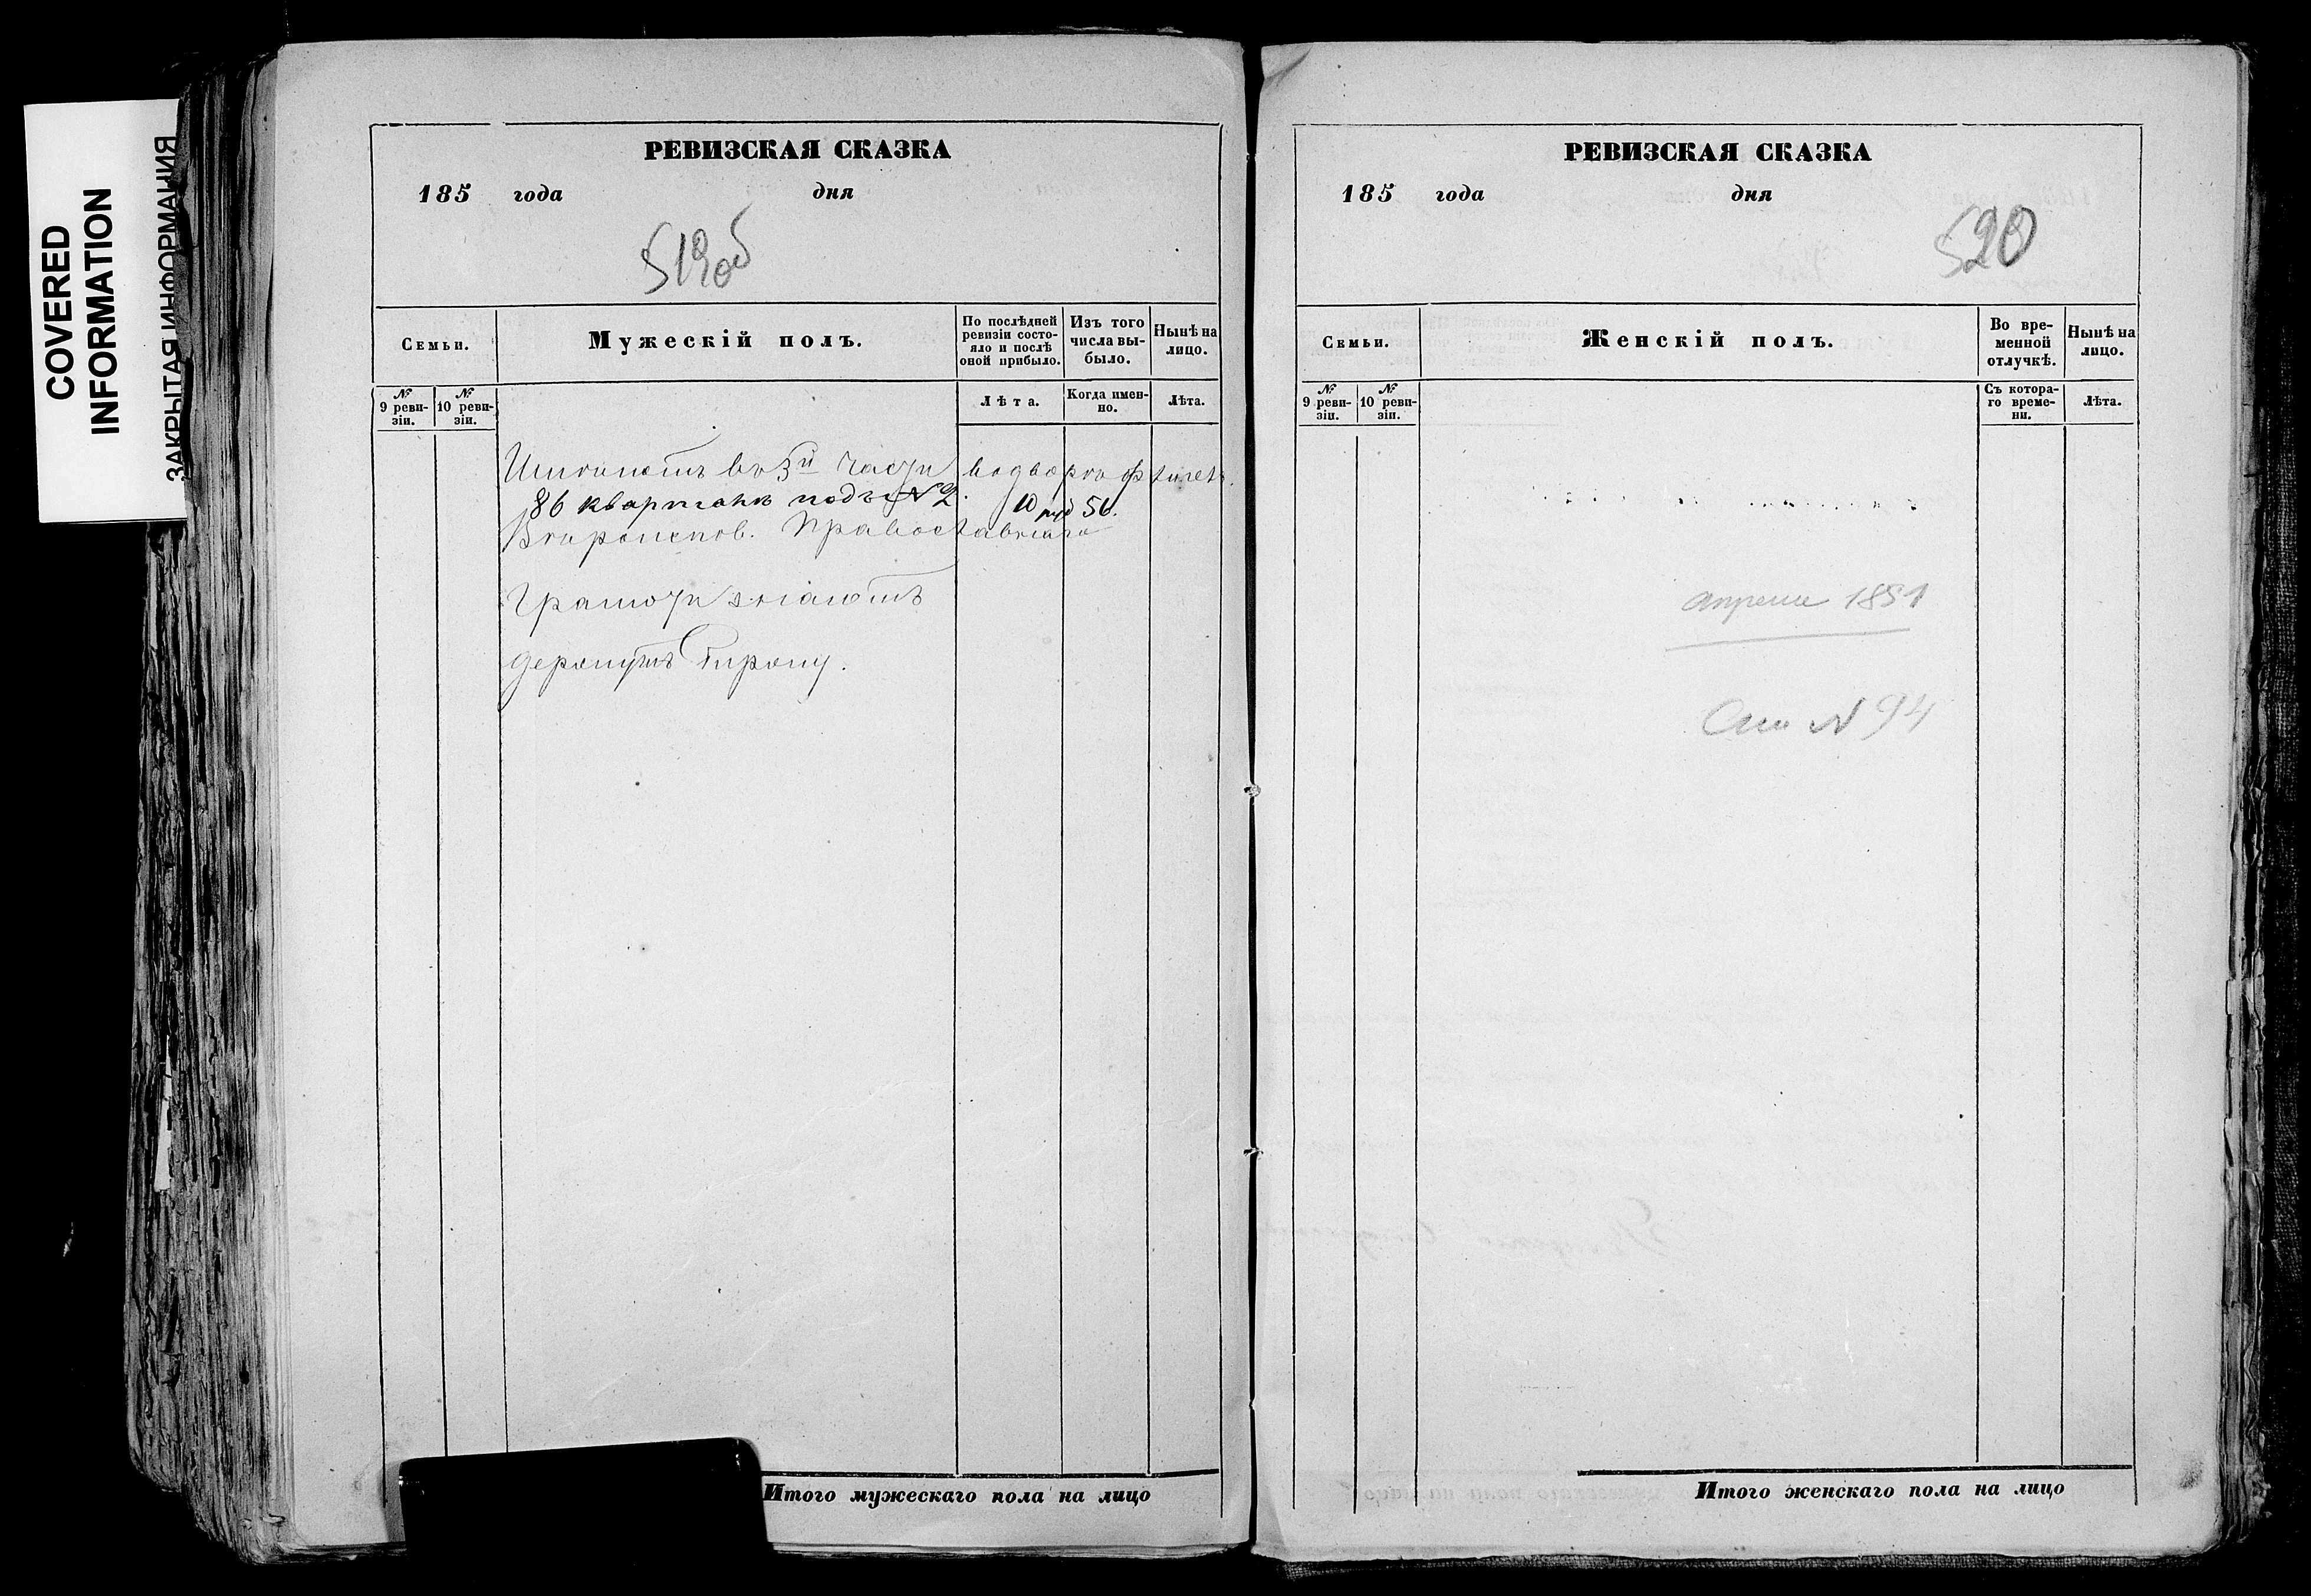 COVERED
INFORMATION
ЗАКРЫТАЯ ИНФОРМАЦИЯ
РЕВИЗСКАЯ СКАЗКА
185 года дня
519 об
Семьи.
Мужескій полъ.
По послѣдней ревизіи состояло и послѣ оной прибыло.
Изъ того числа выбыло.
Нынѣ на лицо.
№ 9 ревизіи.
№ 10 ревизіи.
Лѣта.
Когда именно.
Лѣта.
въ 3й части
86 кварталѣ подъ № 2.
10 56.
Православнаго
Грамоту знаютъ
Итого мужескаго пола на лицо
РЕВИЗСКАЯ СКАЗКА
185 года дня
520
Семьи.
Женскій полъ.
Во временной отлучкѣ.
Нынѣ на лицо.
№ 9 ревизіи.
№ 10 ревизіи.
Съ котораго времени.
Лѣта.
апреля 1851
См № 94
Итого женскаго пола на лицо